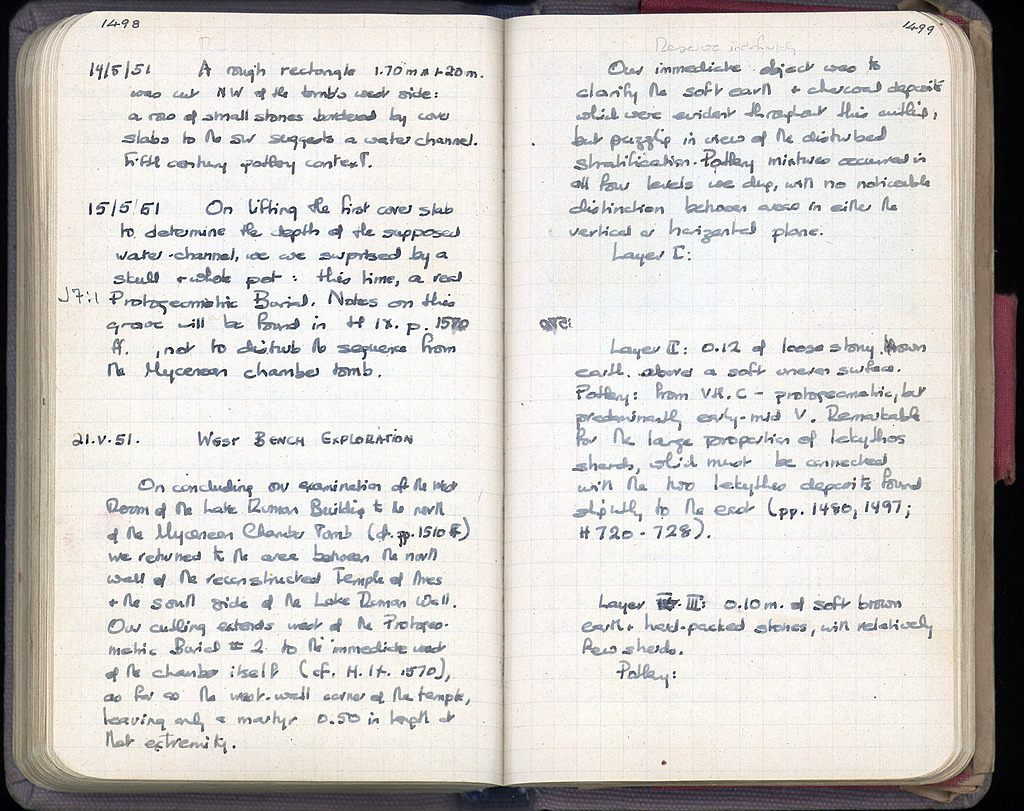 1498
14/5/51 A rough rectangle 1.70 m x 1.20 m.
was cut NW of the tomb's west side:
a row of small stones bordered by cover
slabs to the SW suggests a water channel.
Fifth century pottery context.
15/5/51 On lifting the first cover slab
to determine the depth of the supposed
water-channel, we are surprised by a
skull + whole pot: this time, a real
J7:1 Protogeometric Burial. Notes on this
grave will be found in H IX. p. 1570
ff. , not to disturb the sequence from
the Mycenean chamber tomb.
21.V.51. WEST BENCH EXPLORATION
On concluding our examination of the West
Room of the Late Roman Building to the north
of the Mycenean Chamber Tomb (cf. pp. 1510 ff)
we returned to the area between the north
wall of the reconstructed Temple of Ares
+ the south side of the Late Roman Wall.
Our cutting extends west of the Protogeo-
metric Burial # 2 to the immediate west
of the chamber itself (cf. H. IX. 1570),
as far as the west-wall corner of the temple,
leaving only a martyr 0.50 in length at
that extremity.
1499
Our immediate object was to
clarify the soft earth + charcoal deposits
which were evident throughout this cutting,
but puzzling in view of the disturbed
stratification. Pottery mixtures occurred in
all four levels we dug, with no noticeable
distinction between areas in either the
vertical or horizontal plane.
Layer I:
Layer II: 0.12 of loose stony brown
earth above a soft uneven surface.
Pottery: From VII. C - protogeometric, but
predominantly early-mid V. Remarkable
for the large proportion of lekythos
sherds, which must be connected
with the two lekythos deposits found
slightly to the east (pp. 1480, 1497;
# 720 - 728).
Layer III: 0.10 m. of soft brown
earth + hard-packed stones, with relatively
few sherds.
Pottery: